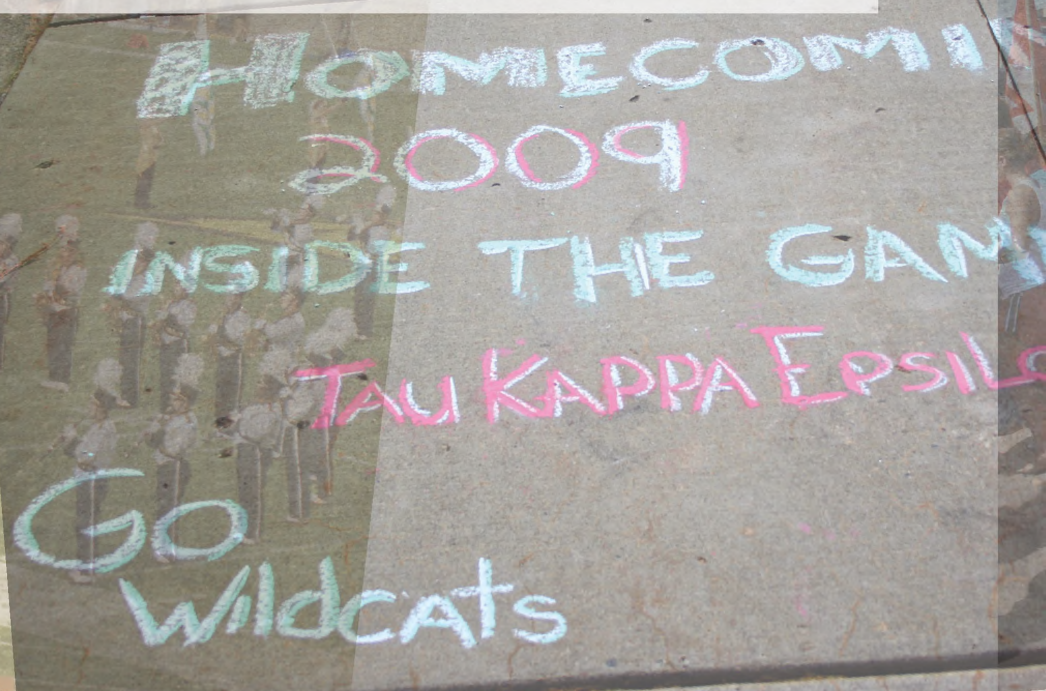 HOMECOMI
2009
INSIDE THE GAM
TAU KAPPA EPSILO
Go
Wildcats